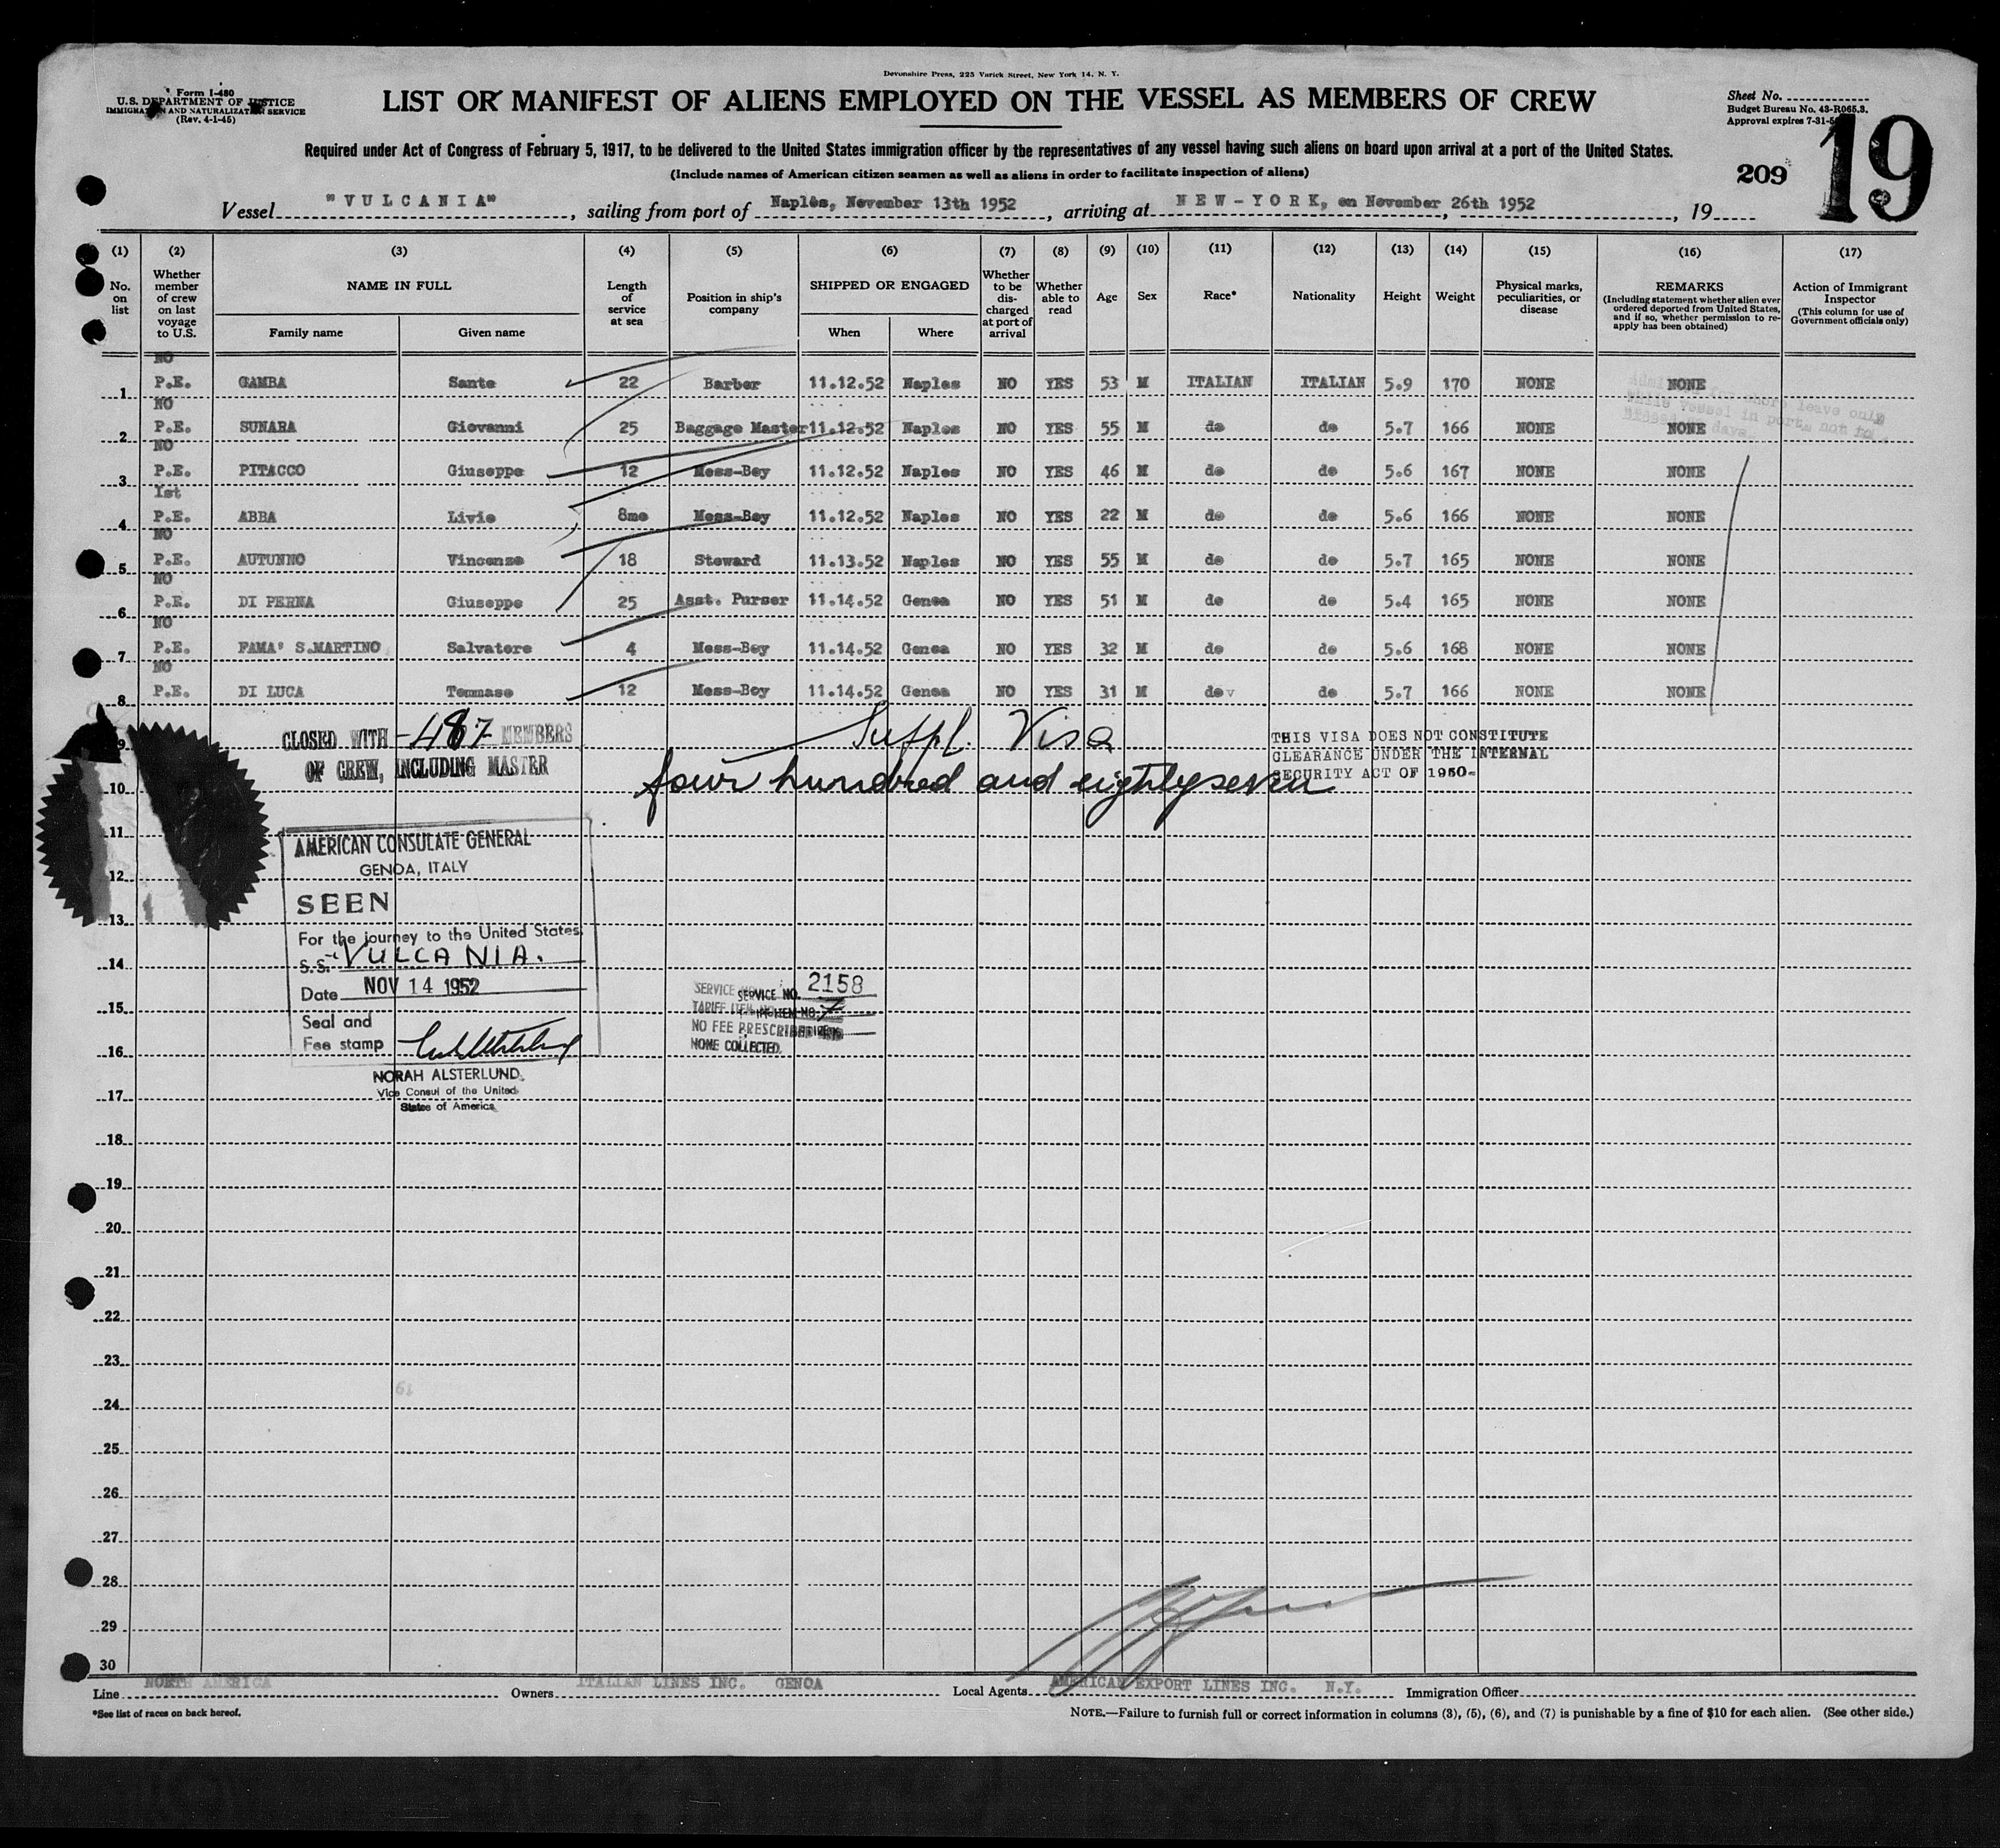 Devonshire Press, 225 Varick Street, New York 14, N. Y.
Form I-480
U.S. DEPARTMENT OF JUSTICE
IMMIGRATION AND NATURALIZATION SERVICE
(Rev. 4-1-45)
LIST OR MANIFEST OF ALIENS EMPLOYED ON THE VESSEL AS MEMBERS OF CREW
Sheet No.
Budget Bureau No. 43-R065.3.
Approval expires 7-31-
Required under Act of Congress of February 5, 1917, to be delivered to the United States immigration officer by the representatives of any vessel having such aliens on board upon arrival at a port of the United States.
(Include names of American citizen seamen as well as aliens in order to facilitate inspection of aliens)
209
19
Vessel "VULCANIA", sailing from port of Naples, November 13th 1952, arriving at NEW-YORK, on November 26th 1952, 19
(1) (2) (3) (4) (5) (6) (7) (8) (9) (10) (11) (12) (13) (14) (15) (16) (17)
No. on list
Whether member of crew on last voyage to U.S.
NAME IN FULL
Family name Given name
Length of service at sea
Position in ship's company
SHIPPED OR ENGAGED
When Where
Whether to be discharged at port of arrival
Whether able to read
Age
Sex
Race*
Nationality
Height
Weight
Physical marks, peculiarities, or disease
REMARKS
(Including statement whether alien ever ordered deported from United States, and if so, whether permission to re-apply has been obtained)
Action of Immigrant Inspector
(This column for use of Government officials only)
NO
1 P.E. GAMBA Sante 22 Barber 11.12.52 Naples NO YES 53 M ITALIAN ITALIAN 5.9 170 NONE NONE
NO
2 P.E. SUNARA Giovanni 25 Baggage Master 11.12.52 Naples NO YES 55 M do do 5.7 166 NONE NONE
NO
3 P.E. PITACCO Giuseppe 12 Mess-Boy 11.12.52 Naples NO YES 46 M do do 5.6 167 NONE NONE
1st
4 P.E. ABBA Livio 8mo Mess-Boy 11.12.52 Naples NO YES 22 M do do 5.6 166 NONE NONE
NO
5 P.E. AUTUNNO Vincenzo 18 Steward 11.13.52 Naples NO YES 55 M do do 5.7 165 NONE NONE
NO
6 P.E. DI PERNA Giuseppe 25 Asst. Purser 11.14.52 Genoa NO YES 51 M do do 5.4 165 NONE NONE
NO
7 P.E. FAMA' S.MARTINO Salvatore 4 Mess-Boy 11.14.52 Genoa NO YES 32 M do do 5.6 168 NONE NONE
NO
8 P.E. DI LUCA Tommaso 12 Mess-Boy 11.14.52 Genoa NO YES 31 M do do 5.7 166 NONE NONE
shore leave only
while vessel in port, not to
days
CLOSED WITH -487 MEMBERS
OF CREW, INCLUDING MASTER
Suppl. Visa
four hundred and eightyseven
THIS VISA DOES NOT CONSTITUTE
CLEARANCE UNDER THE INTERNAL
SECURITY ACT OF 1950-
9
10
11
AMERICAN CONSULATE GENERAL
GENOA, ITALY
12
SEEN
13
For the journey to the United States
S.S. "VULCANIA.
14
Date NOV 14 1952
15
Seal and
Fee stamp
16
NORAH ALSTERLUND
Vice Consul of the United
States of America
SERVICE NO. 2158
TARIFF ITEM NO. 7
NO FEE PRESCRIBED
NONE COLLECTED
17
18
19
20
21
22
23
24
25
26
27
28
29
30
Line NORTH AMERICA Owners ITALIAN LINES INC. GENOA Local Agents AMERICAN EXPORT LINES INC. N.Y. Immigration Officer
*See list of races on back hereof.
NOTE.—Failure to furnish full or correct information in columns (3), (5), (6), and (7) is punishable by a fine of $10 for each alien. (See other side.)